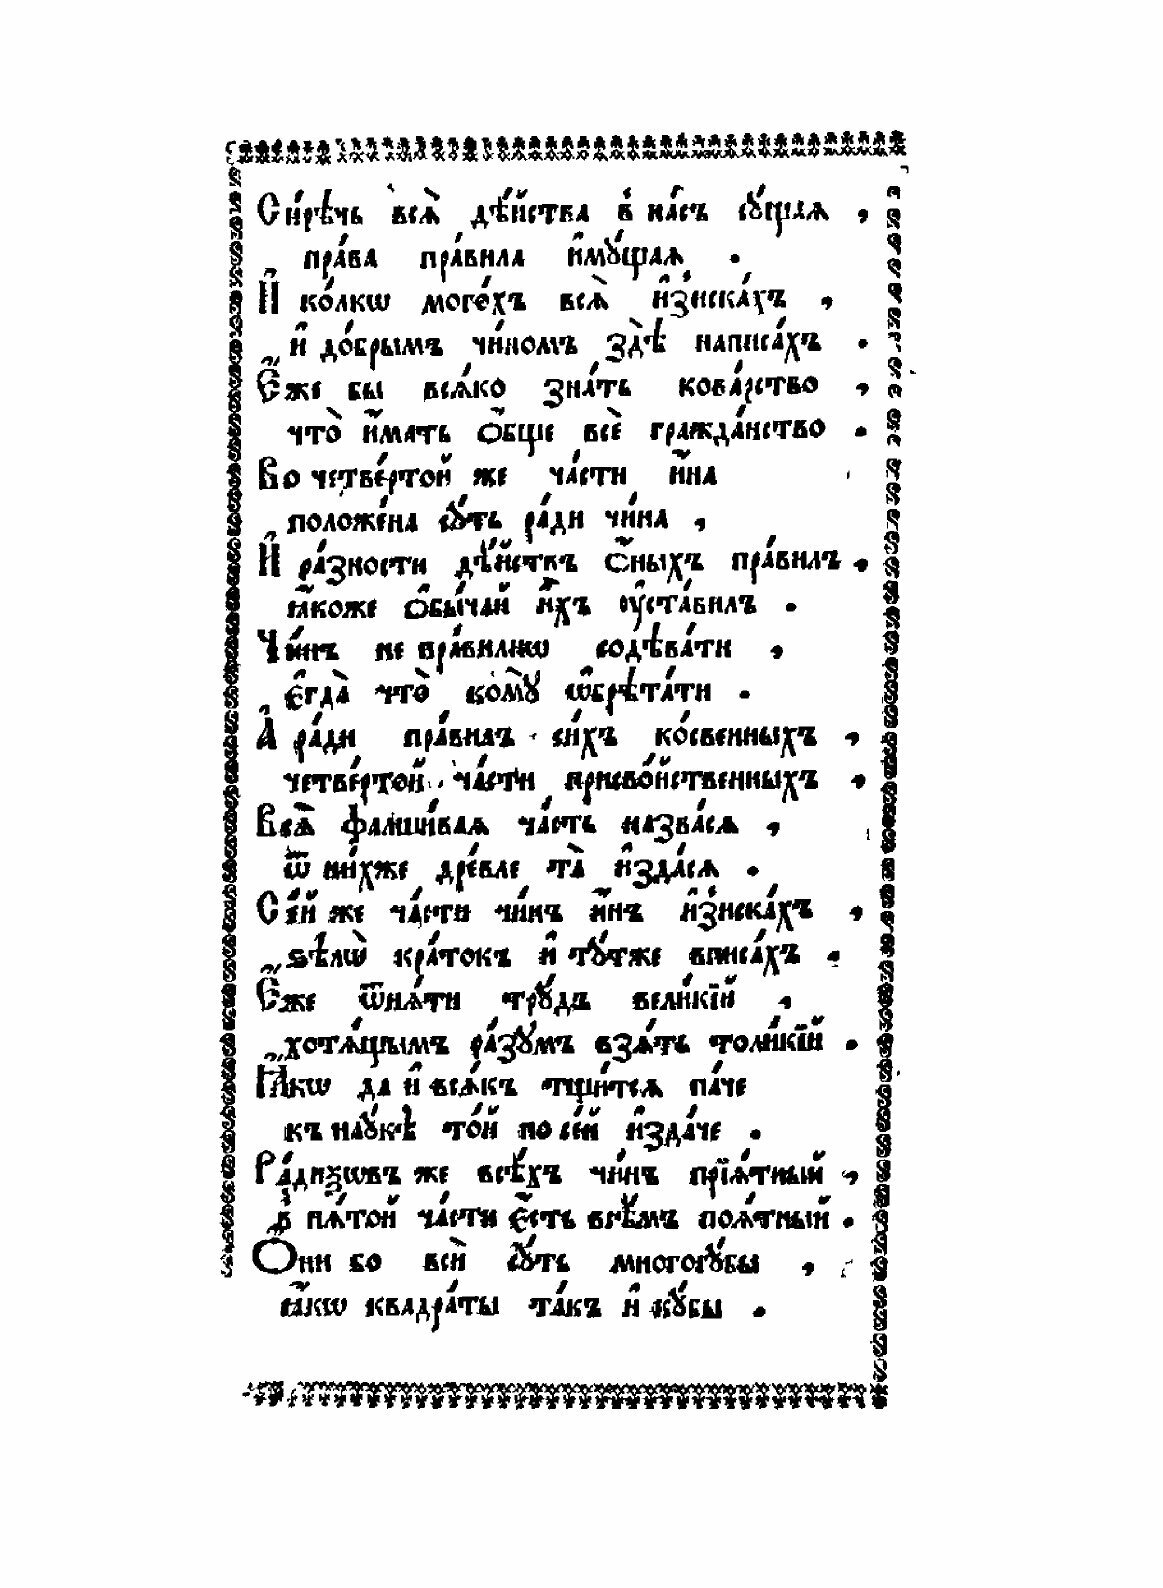 Си́рѣчь всѧ̀ дѣ́йства в̾ на́съ сꙋ́щаѧ ,
пра́ва пра́вила и҆мꙋ́щаѧ .
И҆ ко́лкѡ мого́хъ всѧ̀ и҆з̾иска́хъ ,
и҆ до́брымъ чи́номъ здѣ̀ написа́хъ .
Е҆́же бы всѧ́ко зна́ть кова́рство ,
что̀ и҆́мать ѻ҆́бще всѐ гражда́нство .
Во четве́ртой же ча́сти и҆́на
положе́на сꙋ́ть ра́ди чи́на ,
И҆ ра́зности дѣ́йствъ ѻ҆́ныхъ пра́вилъ ,
ꙗ҆́коже ѻ҆бы́чай и҆́хъ ᲂу҆ста́вилъ .
Чи́нъ не пра́вилнѡ содѣва́ти ,
є҆гда̀ что̀ комꙋ̀ ѡ҆брѣта́ти .
А҆ ра́ди пра́вилъ си́хъ ко́свенныхъ ,
четве́ртой ча́сти присво́йственныхъ ,
Всѧ̀ фалши́ваѧ ча́сть назва́сѧ ,
ѿ ни́хже дре́вле та̀ и҆зда́сѧ .
Се́й же ча́сти чи́нъ и҆́нъ и҆з̾иска́хъ ,
ѕѣлѡ̀ кра́токъ и҆ тꙋ́тже вписа́хъ .
Е҆́же ѿнѧ́ти трꙋ́дъ вели́кїй ,
хотѧ́щымъ ра́зꙋмъ взѧ́ть толи́кїй .
Ꙗ҆́кѡ да и҆ всѧ́къ тщи́тсѧ па́че
къ наꙋ́кѣ то́й по се́й и҆зда́че .
Ра́диѯѡвъ же всѣ́хъ чи́нъ прїѧ́тный ,
в̾ пѧ́той ча́сти є҆́сть всѣ́мъ поѧ́тный .
Ѻни бо всѝ сꙋ́ть многогꙋ́бы ,
ꙗ҆́кѡ квадра́ты та́къ и҆ кꙋ́бы .